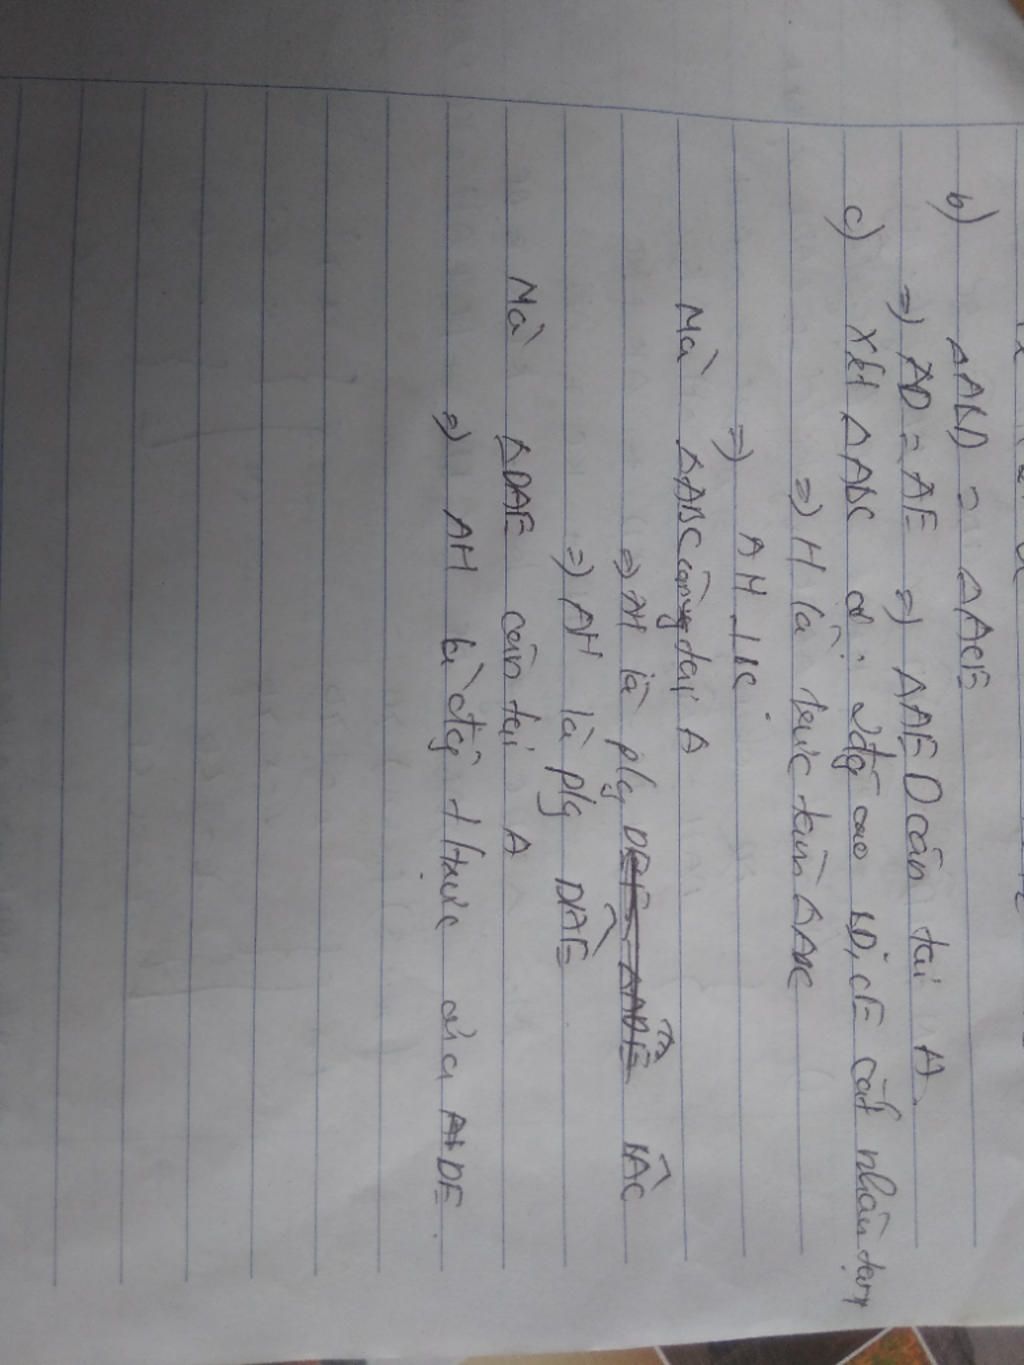 b) ΔABD = ΔACE
=) AD = AE =) ΔAED cân tại A.
c) Xét ΔABC có 2 đg cao BD, CE cắt nhau tại H
=) H là trực tâm ΔABC
=) AH ⊥ BC
Mà ΔABC cân tại A
=) AH là plg BAC
=) AH là plg DAE
Mà ΔDAE cân tại A
=) AH là đg trực của ADE.